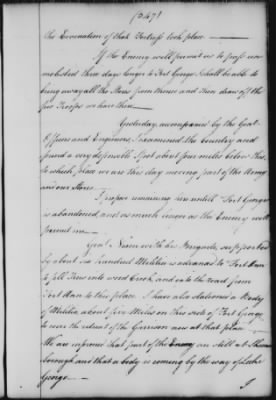 (347)
the Evacuation of that Fortress took place.
If the Enemy will permit us to pass un
molested three days longer to Fort George I shall be able to
bring away all the Stores from thence and then draw off the
few Troops we have there.
Yesterday, accompanied by the Genl.
Officers and Engineers, I examined the Country and
found a very defensible Spot about four miles below this,
to which place we are this day moving part of the Army
and our Stores.
I propose remaining here until Fort George
is abandoned, and as much longer as the Enemy will
permit me.
Genl. Nixon with his Brigade, supported
by about six hundred Militia is advanced to Fort Ann
to fell Trees into Wood Creek, and into the road from
Fort Ann to this place. I have also stationed a Body
of Militia about five Miles on this side of Fort George
to cover the retreat of the Garrison now at that place.
We are informed that part of the Enemy are still at Skenes
borough and that a body is coming by the way of Lake
George.
I